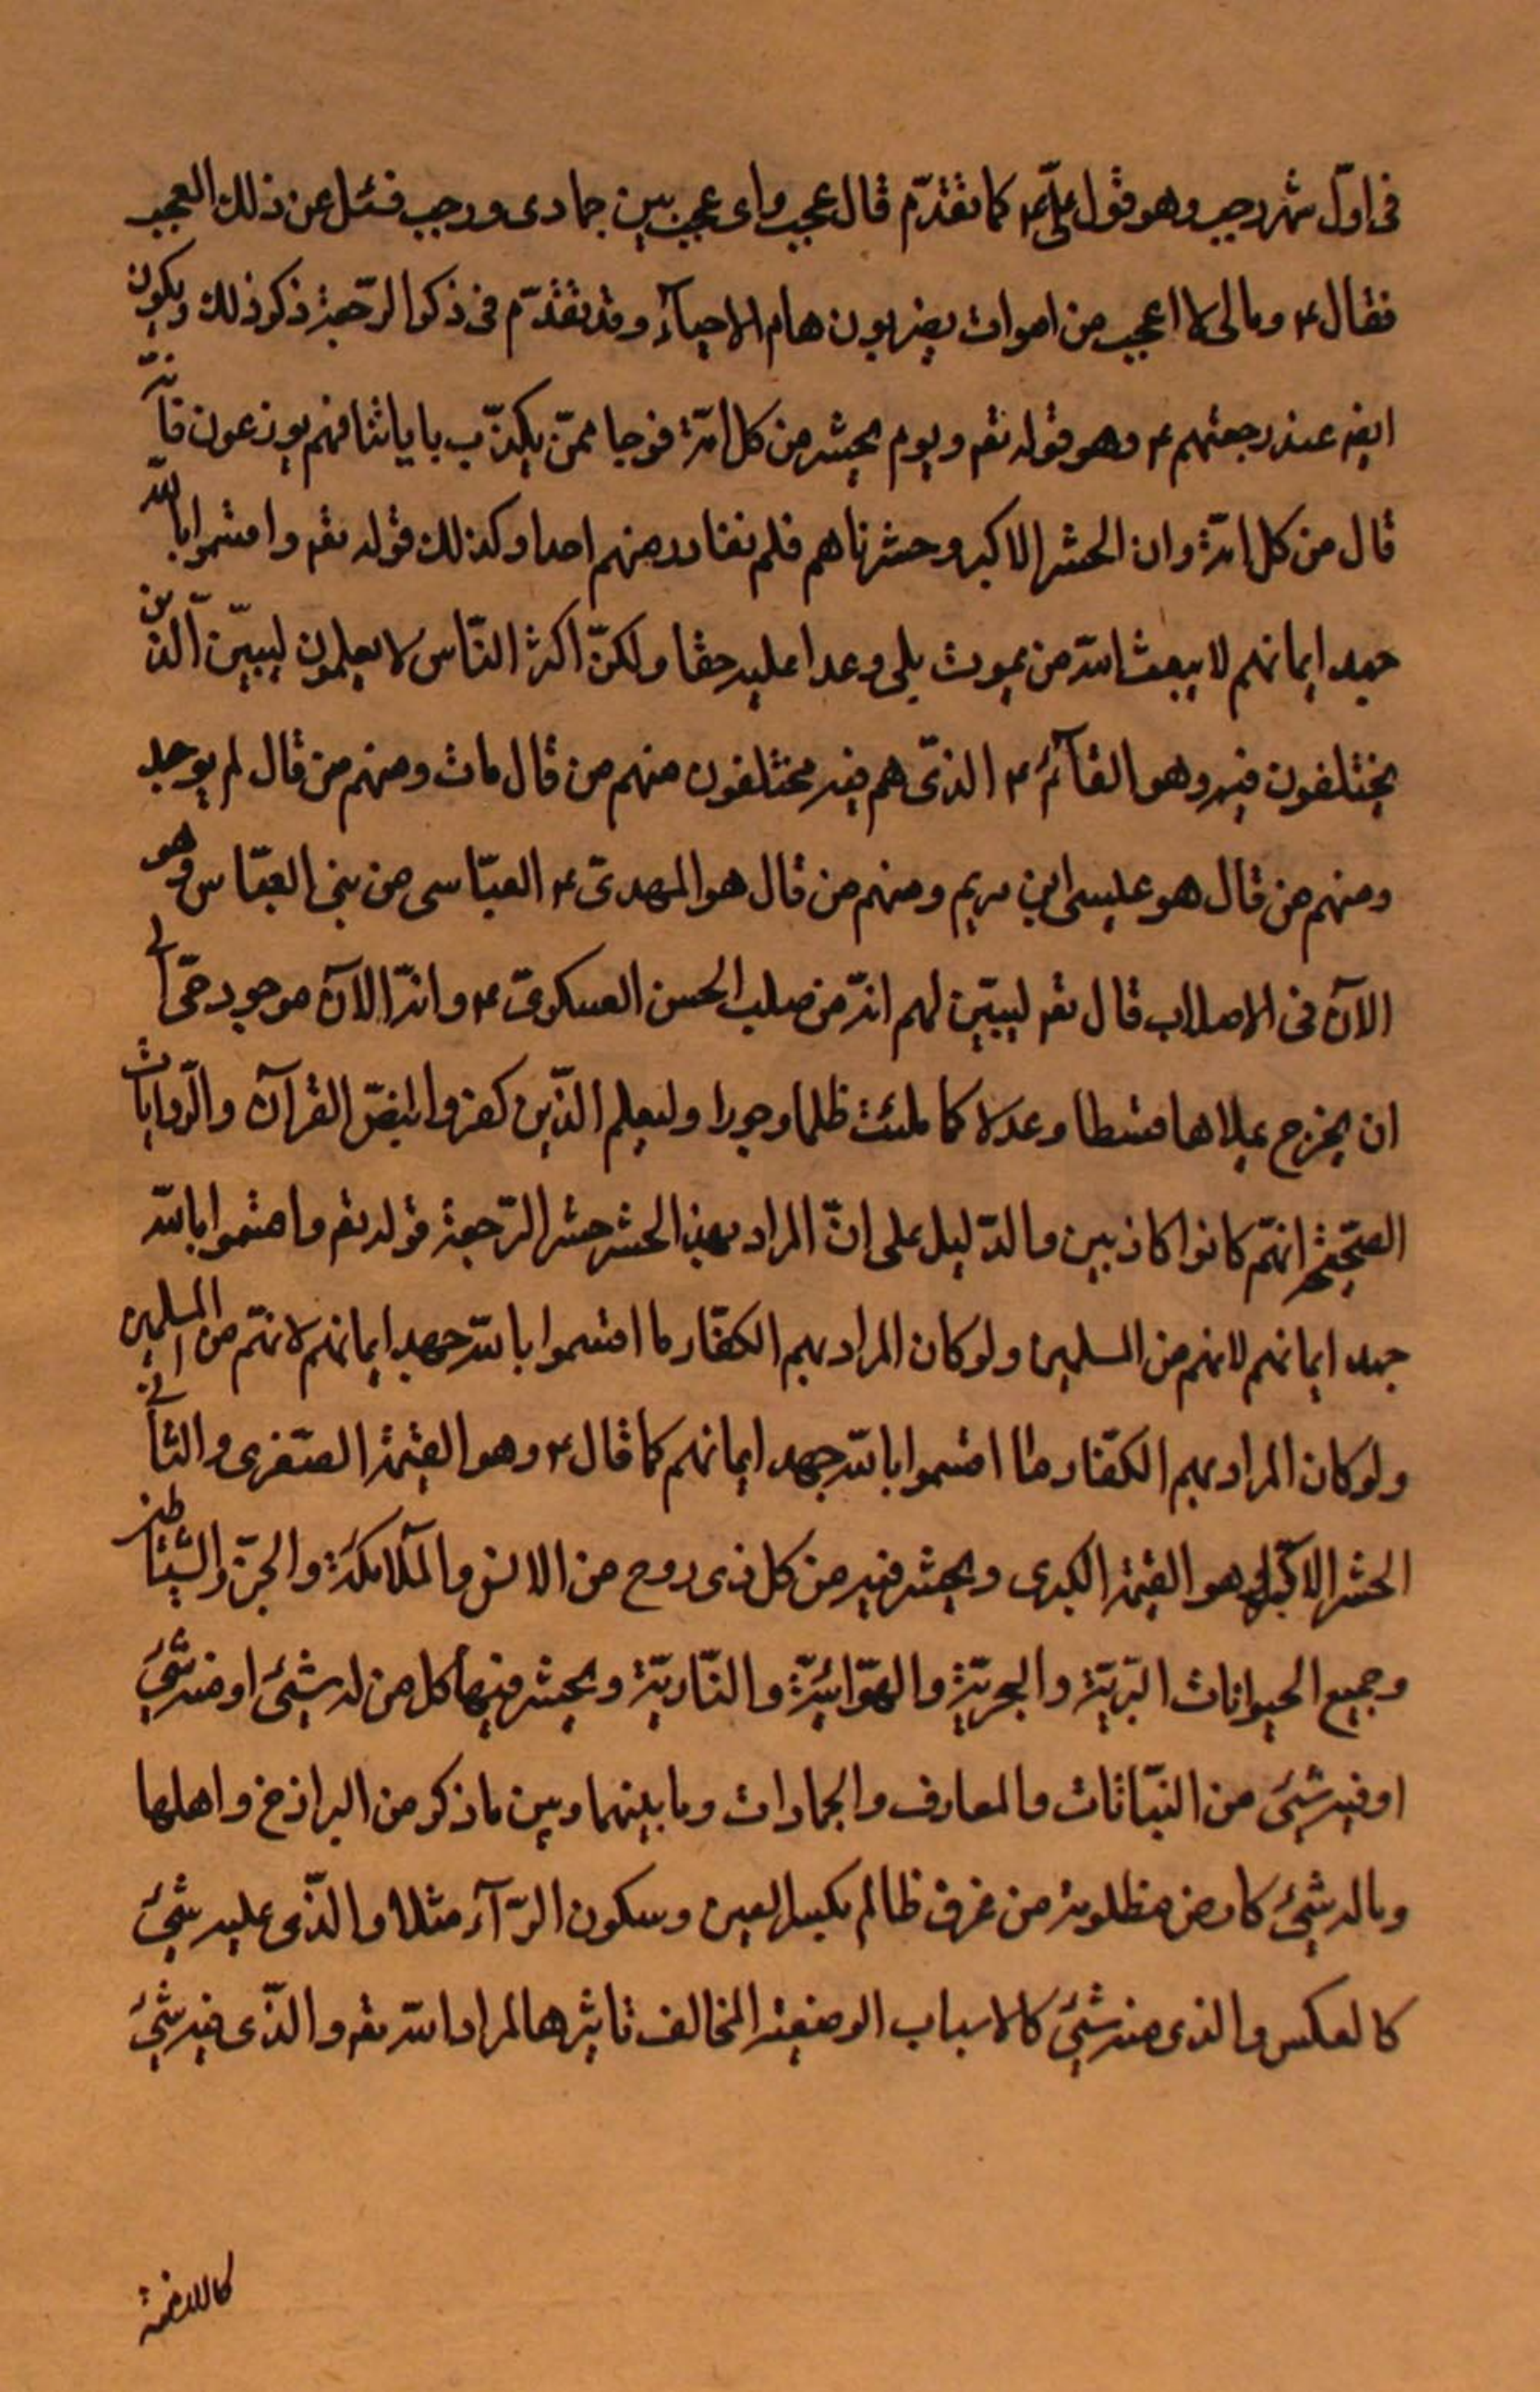 فى اوّل شهر رجب وهو قول علىّ ع كما تقدّم قال عجب واى عجب بين جمادى ورجب فسئل عن ذلك العجب
فقال ع ومالى لا اعجب من اموات يضربون هام الاحيآء وقد تقدّم فى ذكر الرّجعة ذكر ذلك ويكون
ايضا عند رجعتهم ع وهو قوله تعـ ويوم يحشر من كل امّة فوجا ممّن يكذّب باياتنا فهم يوزعون فانّه
قال من كل امّة وان الحشر الاكبر وحشرناهم فلم نغادر منهم احدا وكذلك قوله تعـ واقسموا بالله
جهد ايمانهم لا يبعث الله من يموت بلى وعدا عليه حقا ولكنّ اكثر النّاس لا يعلمون ليبيّن الّذين
يختلفون فيه وهو القآئم ع الذّى هم فيه مختلفون منهم من قال مات ومنهم من قال لم يوجد
ومنهم من قال هو عليسى ابن مريم ومنهم من قال هو المهدىّ ع العبّاسى من بنى العبّاس وهو
الآن فى الاصلاب قال تعـ ليبيّن لهم انّه من صلب الحسن العسكرىّ ع وانّه الآن موجود حىّ الى
ان يخرج يملاها قسطا وعدلا كما ملئت ظلما وجورا وليعلم الذّين كفروا بنصّ القرآن والرّوايات
الصّحيحة انّهم كانوا كاذبين والدّليل على انّ المراد بهذ الحشر حشر الرّجعة قوله تعـ واقسموا بالله
جهد ايمانهم لانهم من المسلمين ولو كان المراد بهم الكفّار ما اقسموا بالله جهد ايمانهم لانهّم من المسلمين
ولو كان المراد بهم الكفّار ما اقسموا بالله جهد ايمانهم كما قال ع وهو القيمة الصّغرى والثانى
الحشر الاكبر وهو القيمة الكبرى ويحشر فيه من كل ذى روح من الانس والملآئكة والجنّ والشّياطين
وجميع الحيوانات البّريّة والبحريّة والهوّائيّة والنّاريّة ويحشر فيها كل من له شيئ او منه شيئ
او فيه شيئ من النبّاتات والمعارف والجمادات وما بينهما وبين ما ذكر من البرازخ واهلها
وما له شيئ كارض مظلومة من غرف ظالم بكسر العين وسكون الرّآء مثلا والذّى عليه شيئ
كالعكس والذى منه شيئ كالاسباب الوضعية المخالف تاثيرها لمراد الله تعـ والذّى فيه شيئ